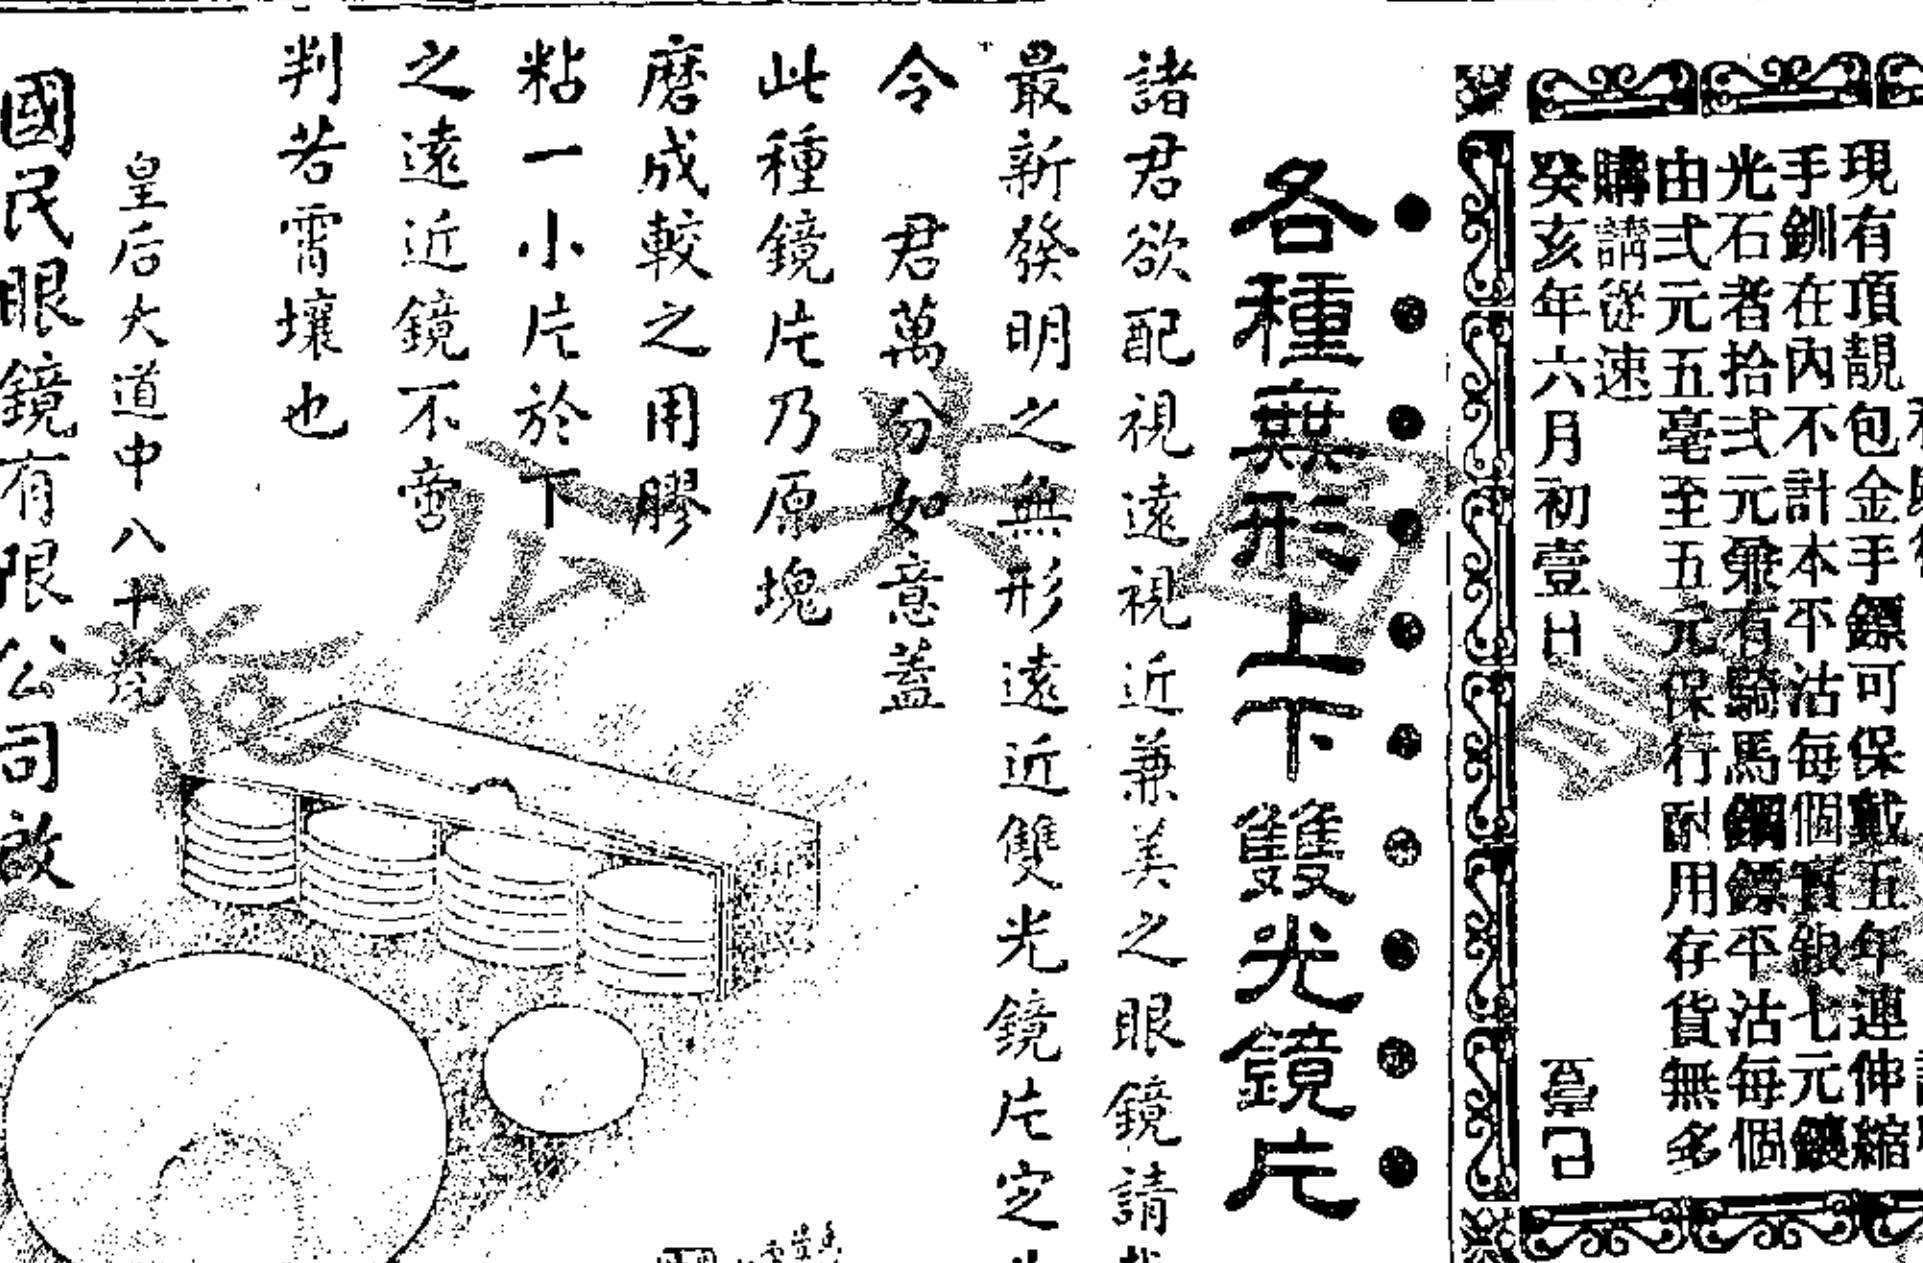 現有頂靚包金手鏢可保戴五年連伸縮
手釧在內不計本平沽每個實銀七元鑲
光石者拾弍元兼有騎馬鋼鏢平沽每個
由弍元五毫至五元保行耐用存貨無多
購請從速
癸亥年六月初壹日
各種無形上下雙光鏡片
諸君欲配視遠視近兼美之眼鏡請
最新發明之無形遠近雙光鏡片定
令 君萬分如意蓋
此種鏡片乃原塊
磨成較之用膠
粘一小片於下
之遠近鏡不啻
判若霄壤也
皇后大道中八十號
國民眼鏡有限公司啟